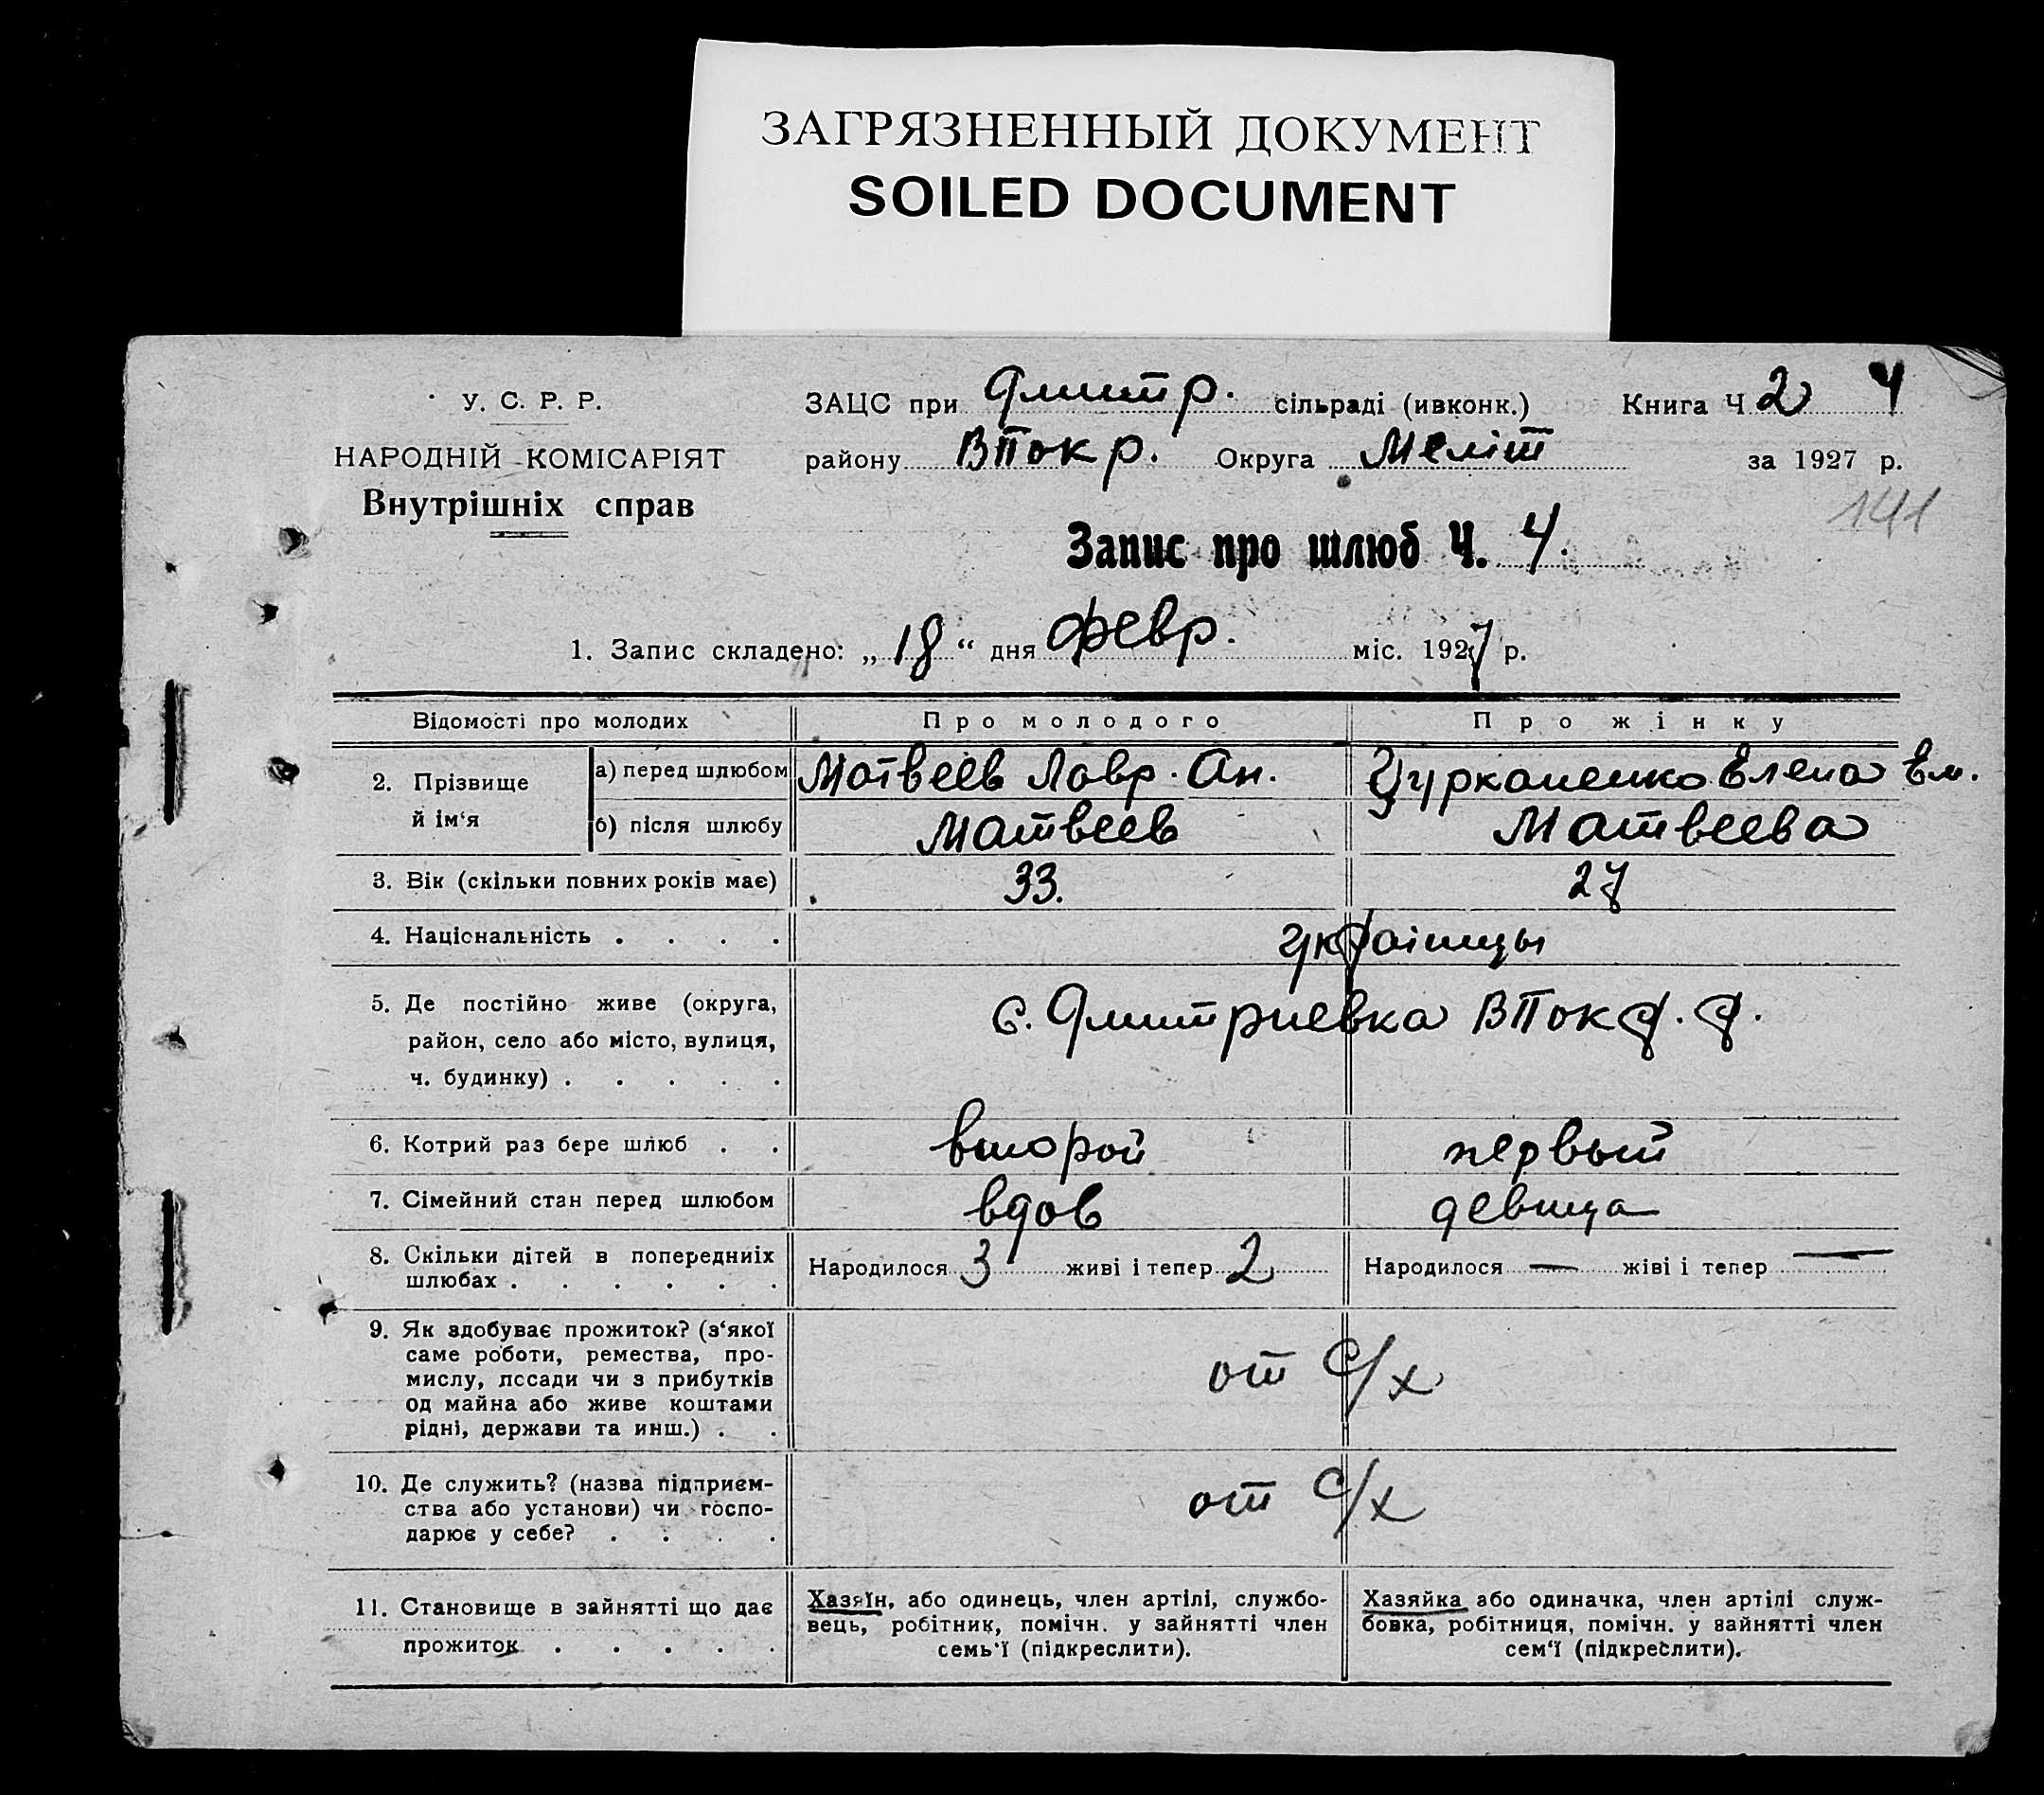 ЗАГРЯЗНЕННЫЙ ДОКУМЕНТ
SOILED DOCUMENT
У. С. Р. Р.
НАРОДНІЙ КОМІСАРІЯТ
Внутрішніх справ
ЗАЦС при Дмитр. сільраді (ивконк.) Книга Ч 2 4
району ВТокр. Округа Меліт за 1927 р.
141
Запис про шлюб Ч. 4.
1. Запис складено: „ 18 “ дня февр. міс. 1927 р.
Відомості про молодих Про молодого Про жінку
2. Прізвище й ім‘я
а) перед шлюбом Матвеев Лавр. Ан. Цурканенко Елена Ем.
б) після шлюбу Матвеев Матвеева
3. Вік (скільки повних років має) 33. 27
4. Національність . . . . украінцы
5. Де постійно живе (округа, район, село або місто, вулиця, ч. будинку) . . . . . с. Дмитриевка ВТок р. р.
6. Котрий раз бере шлюб . . второй первый
7. Сімейний стан перед шлюбом вдов девица
8. Скільки дітей в попередниіх шлюбах . . . . . . Народилося 3 живі і тепер 2 Народилося — жіві і тепер —
9. Як здобуває прожиток? (з‘якої
саме роботи, ремества, про-
мислу, посади чи з прибутків
од майна або живе коштами
рідні, держави та инш.) . .
от с/х
10. Де служить? (назва підприєм-
ства або установи) чи госпо-
дарює у себе? . . . .
от с/х
11. Становище в зайнятті що дає
прожиток . . . . .
Хазяїн, або одинець, член артілі, службо-
вець, робітник, помічн. у зайнятті член
семь‘ї (підкреслити).
Хазяйка або одиначка, член артілі служ-
бовка, робітниця, помічн. у зайнятті член
сем‘ї (підкреслити).